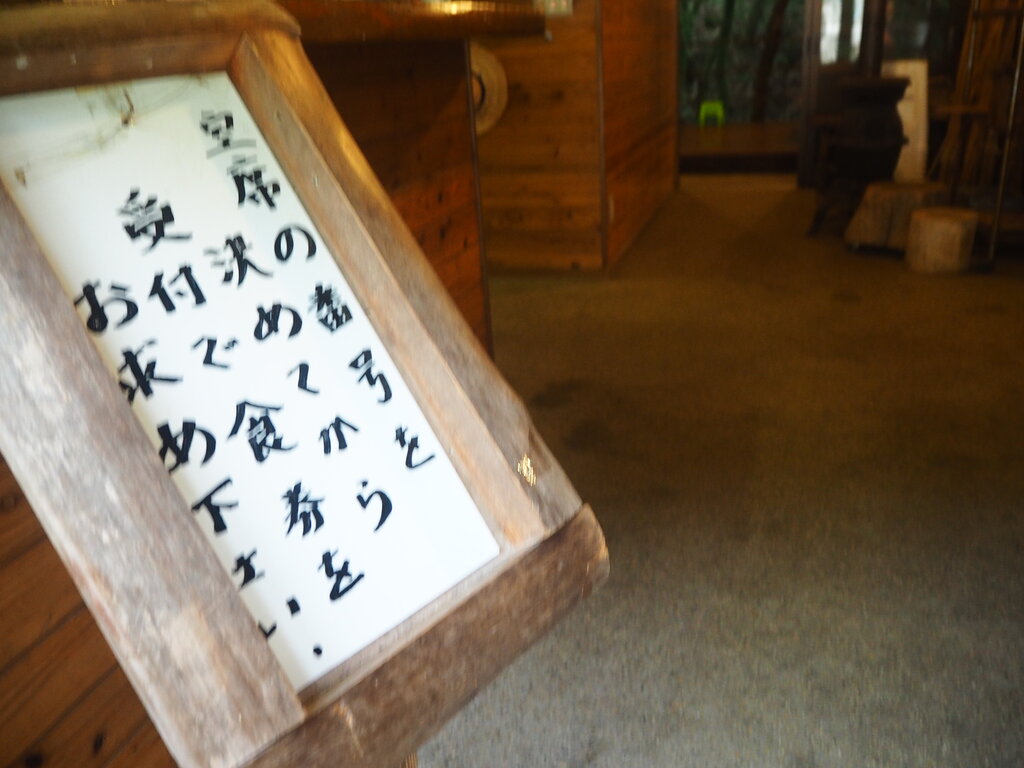 空席の番号を
決めてから
受付で食券を
お求め下さい.